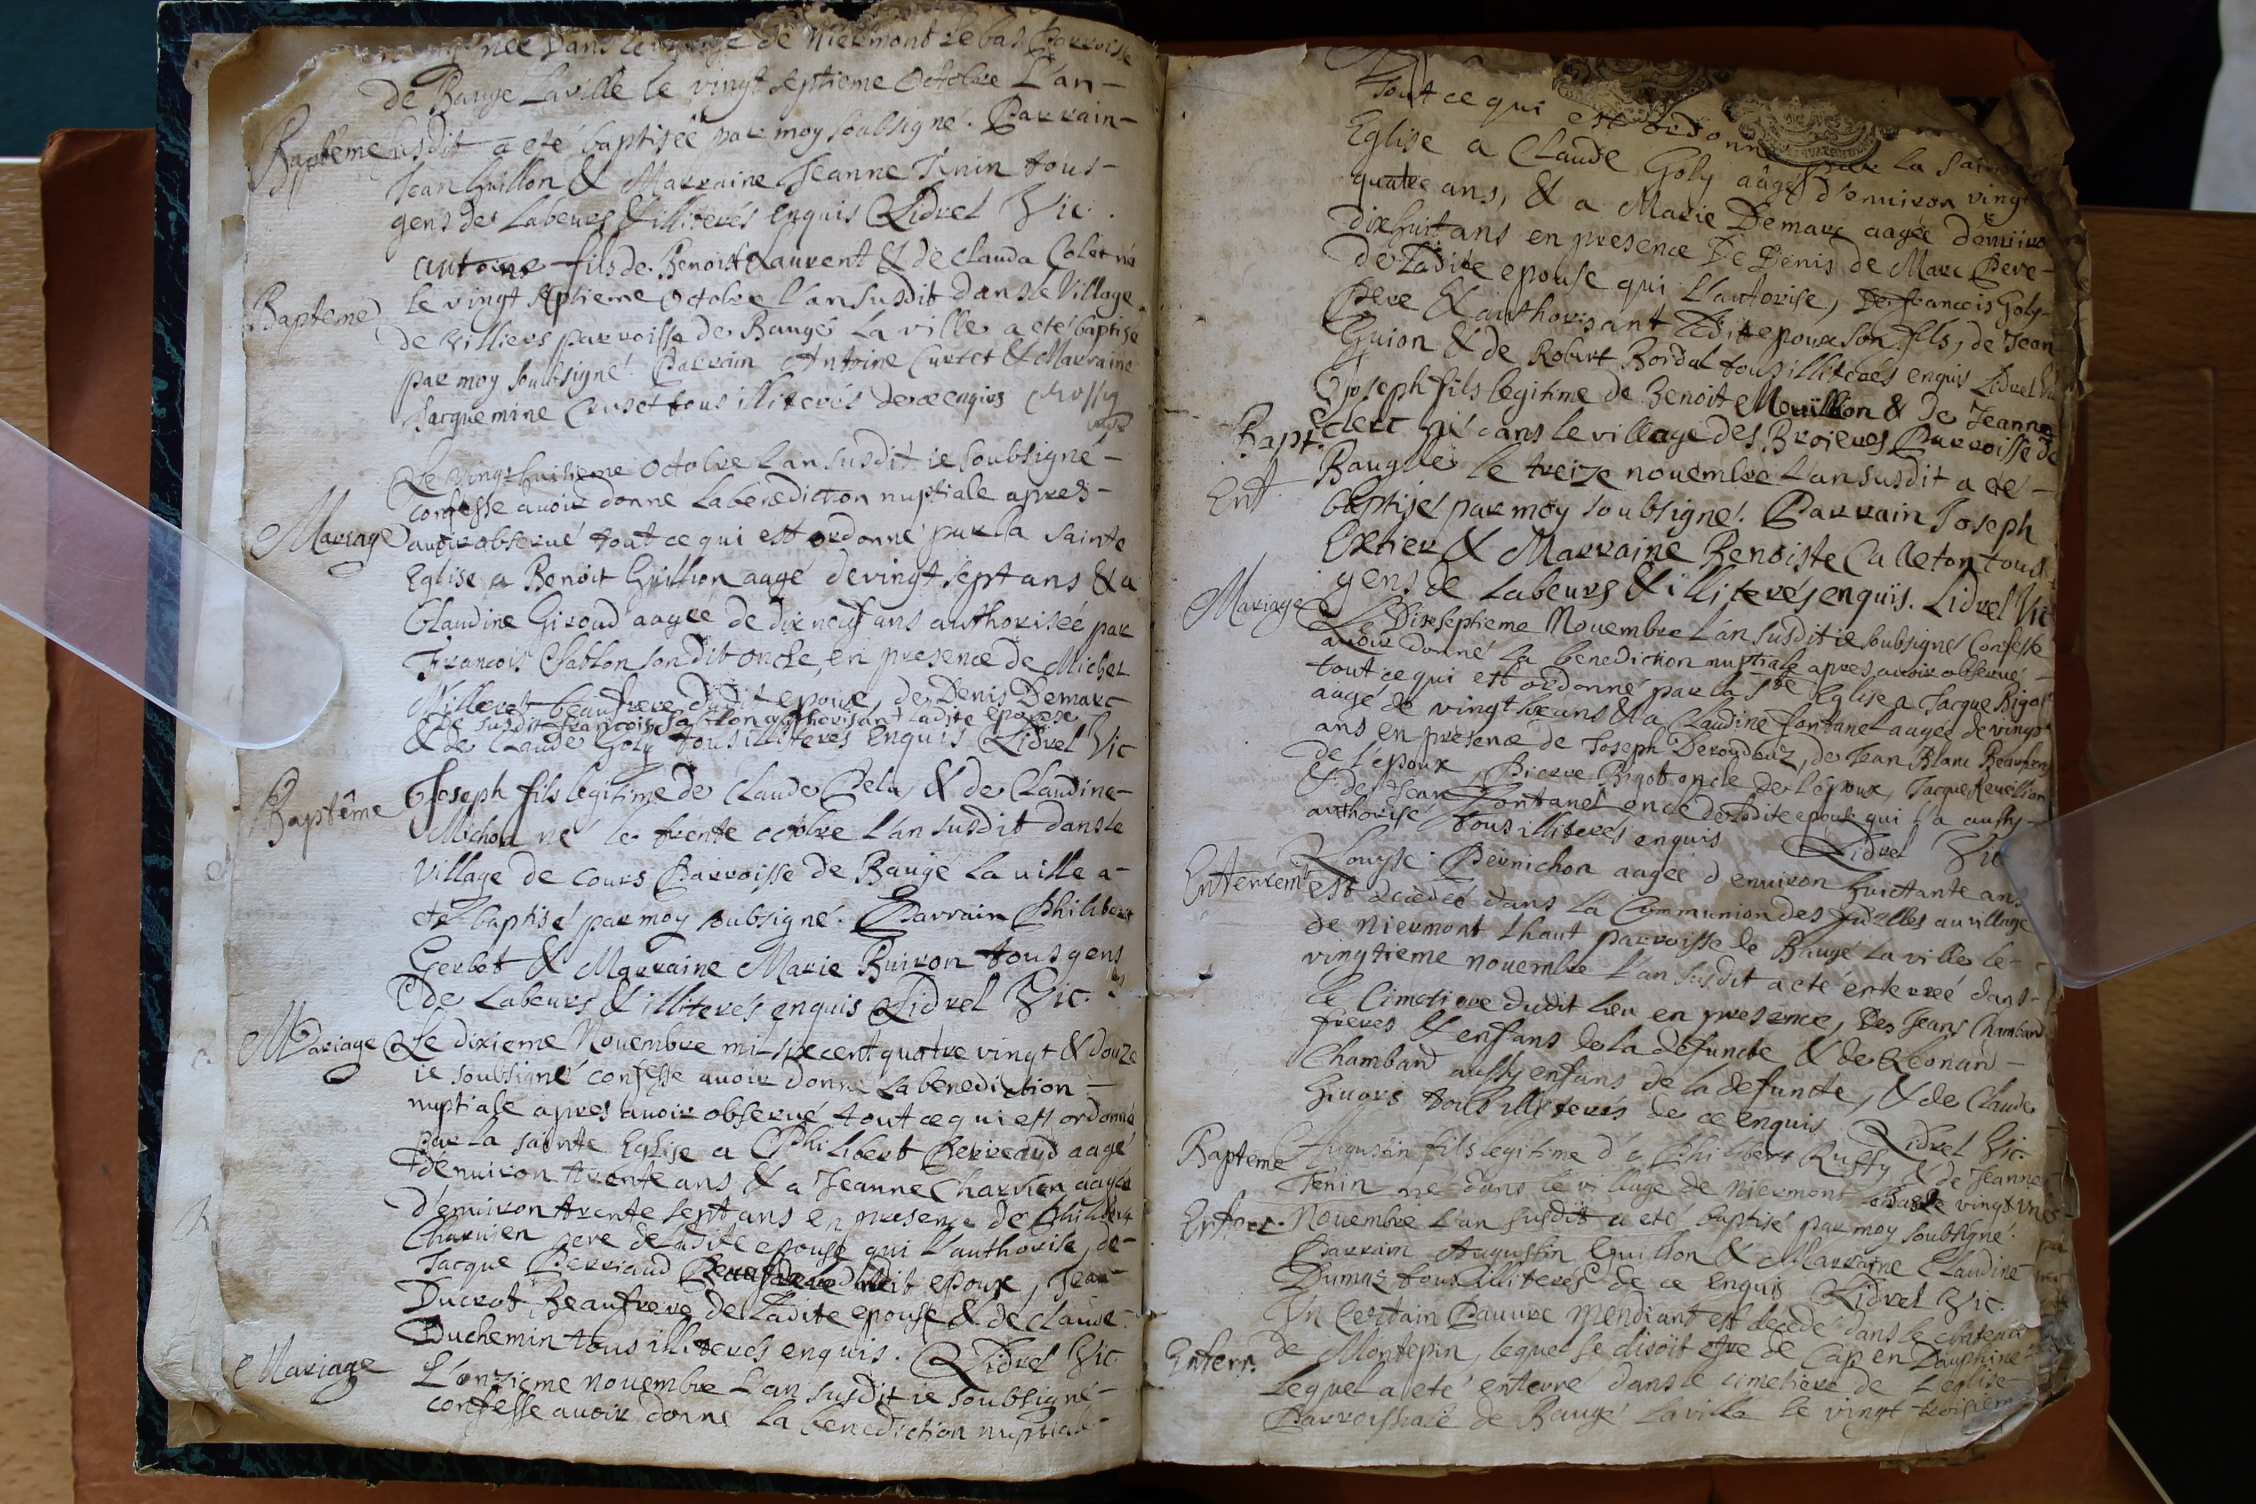 née dans le village de Niermont le bas Parroisse
de Bauge Laville le vingt septieme Octobre L'an-
Bapteme susdit a eté baptisée par moy soubsigné. Parrain-
Jean Guillon & Marraine Jeanne Tenin tous-
gens de Labeurs & illiterés enquis Lidrel Vic.
antoine fils de Benoist Laurent & de Clauda Colet né
Bapteme le vingt septieme Octobre l'an susdit dans le Village
de Villiers parroisse de Baugé La ville a eté baptisé
par moy soubsigné. Parrain Antoine Curtet & Marraine
Jacquemine Cruset tous illiterés de ce enquis
Le vingt huitieme Octobre L'an susdit ie soubsigné-
confesse auoir donne La benediction nuptiale apres-
Mariage auoir obserué tout ce qui est ordonné par la sainte
Eglise a Benoit Guillion aagé de vingt sept ans & a
Claudine Giroud aagée de dix neuf ans authorisée par
Francois Chablon son dit oncle, en presence de Michel
Villeret beaufrere dudit epoux, de Denis Demarc
de susdit francois authorisant ladite epouse
& de Claude Goly tous illiteres enquis Lidrel Vic
Baptême Joseph fils legitime de Claude Pela & de Claudine-
Michon né le trente octobre l'an susdit dans le
Village de Cours Parroisse de Baugé La uille a-
eté baptisé par moy soubsigné. Parrain Philibert
Gerbet & Marraine Marie Buiron tous gens
de Labeurs & illiterés enquis Lidrel Vic.
Mariage Le dixieme Nouembre mil six cent quatre vingt & douze
ie soubsigné confesse auoir donné La benediction-
nuptiale apres auoir obserué tout ce qui est ordonné
par la sainte Eglise a Philibert Perreaud aagé
d'enuiron trente ans & a Jeanne Charuien aagée
d'enuiron trente sept ans en presence de Philibert
Charuien pere de ladite epouse qui l'authorise, de-
Jacque Perriaud Beaufrere dudit epoux, Jean-
Ducrot Beaufrere de Ladite epouse & de Claude-
Duchemin tous illiterés enquis. Lidrel Vic
Mariage L'onzieme nouembre L'an susdit ie soubsigné-
confesse auoir donne La benediction nuptiale-
Tout ce qui est ordonné par la sainte
Eglise a Claude Goly aagé d'enuiron vingt
quatre ans, & a Marie Demarc aagée d'enuiron
dixhuit ans en presence De Denis de Marc Pere-
de Ladite epouse qui L'autorise, De francois Goly
Pere & authorisant Ledit epoux son fils, de Jean
Guion & de Robert Bordal tous illiterés enquis Lidrel Vic
Joseph fils legitime de Benoit Mouillon & de Jeanne
Bapt. Clerc né dans le village des Broieres Parroisse de
Baugé le treize nouembre L'an susdit a eté-
Ent baptisé par moy soubsigné. Parrain Joseph
Extier & Marraine Benoiste Calleton tous
gens de Labeurs & illiterés enquis. Lidrel Vic
Mariage Le Dixseptieme Nouembre L'an susdit ie soubsigné Confesse
auoir donné la benediction nuptiale apres auoir obserué-
tout ce qui est ordonné par la Ste Eglise a Jacque Bigot
aagé de vingt six ans & a Claudine fontanel aagée de vingt
ans en presence de Joseph Deroudbuz, de Jean Blanc Beaufrere
de l'époux, Pierre Bigot oncle de l'époux, Jacque Reuellion
& de Jean Fontanel oncle de Ladite epouse qui l'a aussy-
authorisé tous illiterés enquis Lidrel Vic
Louyse Pernichon aagée d'enuiron huictante ans
Enterremt est decedée dans La Communion des fidelles au village
de niermont Lhaut parroisse de Baugé La ville le-
vingtieme nouembre L'an susdit a eté enterreé dans-
le Cimetiere dudit Lieu en presence, Des Jeans Chamband
freres & enfans de la defuncte & de Leonard-
Chamband aussy enfans de la defuncte, & de Claude
Giuors tous illiterés de ce enquis Lidrel Vic.
Bapteme Augustin fils legitime de Philibert Ruffy & de Jeanne
Tenin né dans le village de niermont le Bas le vingt vnes-
Enterr. Nouembre L'an susdit a eté baptisé par moy soubsigné.
Parrain Augustin Guillon & Marraine Claudine
Dumaz tous illiterés de ce Enquis Lidrel Vic.
Un Certain Pauure mendiant est decedé dans le chateau
Enterr. de Montepin, lequel se disoit etre de Cap en Dauphiné-
Lequel a eté enterré dans le cimetiere de L'eglise-
Parroissiale de Baugé La ville le vingt troisieme